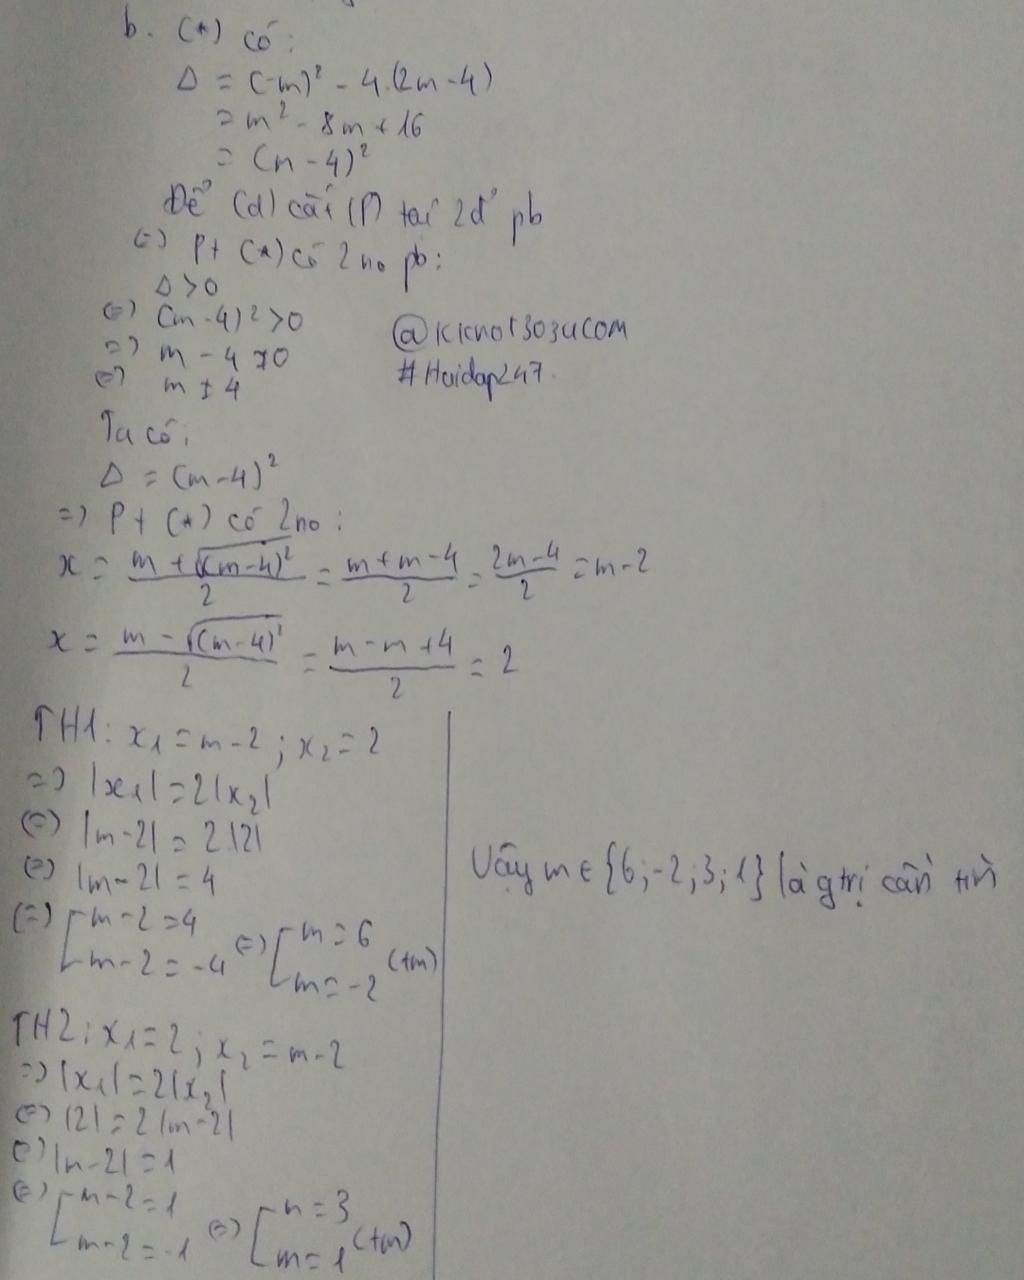 b. (*) có:
Δ = (-m)² - 4.(2m-4)
= m² - 8m + 16
= (m-4)²
Để (d) cắt (P) tại 2đ' pb
(=) Pt (*) có 2 no pb:
Δ>0
(=) (m-4)²>0
=) m-4≠0
(=) m≠4
@kkhot303ucom
#Hoidap247.
Ta có:
Δ = (m-4)²
=) Pt (*) có 2no:
x = (m+√(m-4)²)/2 = (m+m-4)/2 = (2m-4)/2 = m-2
x = (m-√(m-4)²)/2 = (m-m+4)/2 = 2
TH1: x₁=m-2; x₂=2
=) |x₁|=2|x₂|
(=) |m-2| = 2.|2|
(=) |m-2| = 4
(=) [m-2=4 (=) [m=6
[m-2=-4 [m=-2 (tm)
TH2: x₁=2; x₂=m-2
=) |x₁|=2|x₂|
(=) |2|=2|m-2|
(=) |m-2|=1
(=) [m-2=1 (=) [m=3
[m-2=-1 [m=1 (tm)
Vậy m∈{6;-2;3;1} là gtrị cần tìm